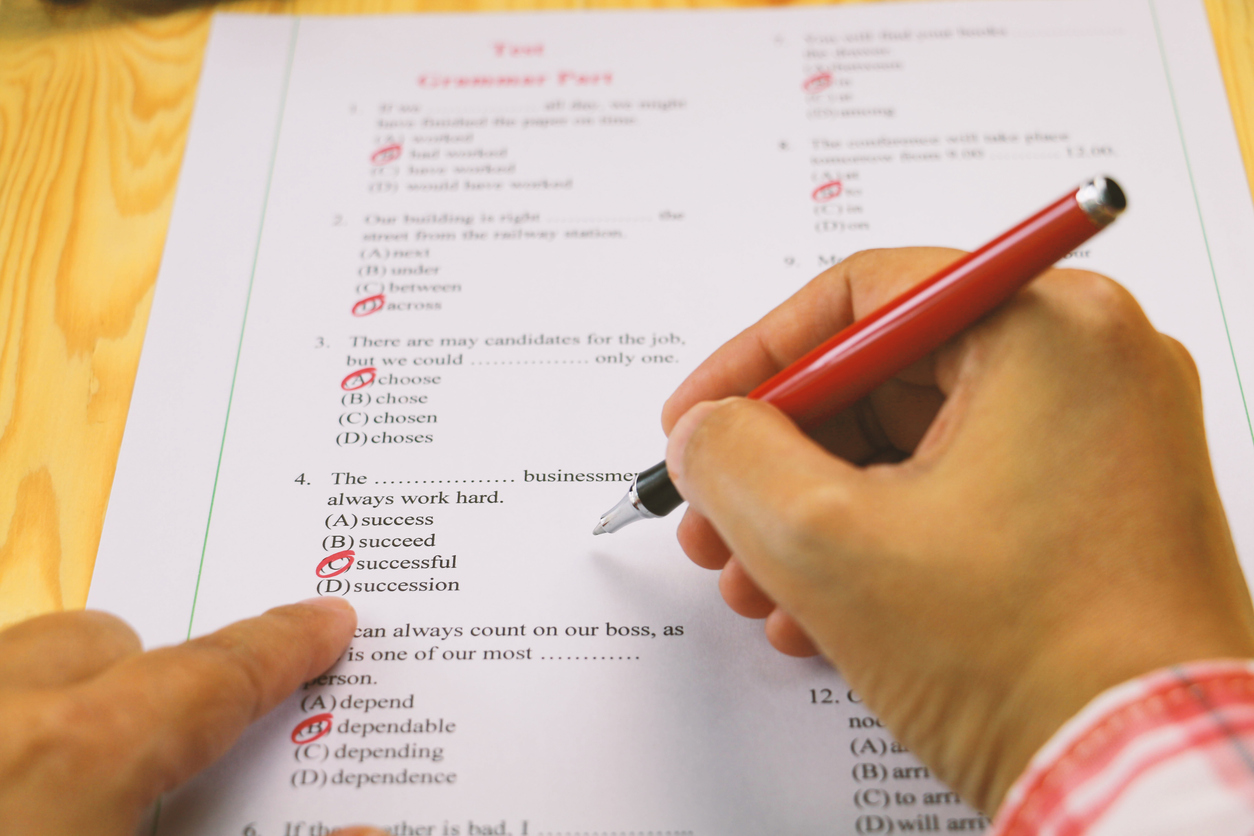 Test
Grammar Part
1. If we .................... all day, we might
have finished the paper on time.
(A) worked
(B) had worked
(C) have worked
(D) would have worked
2. Our building is right ................ the
street from the railway station.
(A) next
(B) under
(C) between
(D) across
3. There are may candidates for the job,
but we could ................ only one.
(A) choose
(B) chose
(C) chosen
(D) choses
4. The ................. businessme
always work hard.
(A) success
(B) succeed
(C) successful
(D) succession
can always count on our boss, as
is one of our most ............
person.
(A) depend
(B) dependable
(C) depending
(D) dependence
6. If the ther is bad, I ....................
You will find your books ....................
the drawer.
(B) in
(C) at
(D) among
8. The conference will take place
tomorrow from 9.00 ........... 12.00.
(A) at
(B) to
(C) in
(D) on
9.
12.
(A)
(B) arri
(C) to arri
(D) will arri